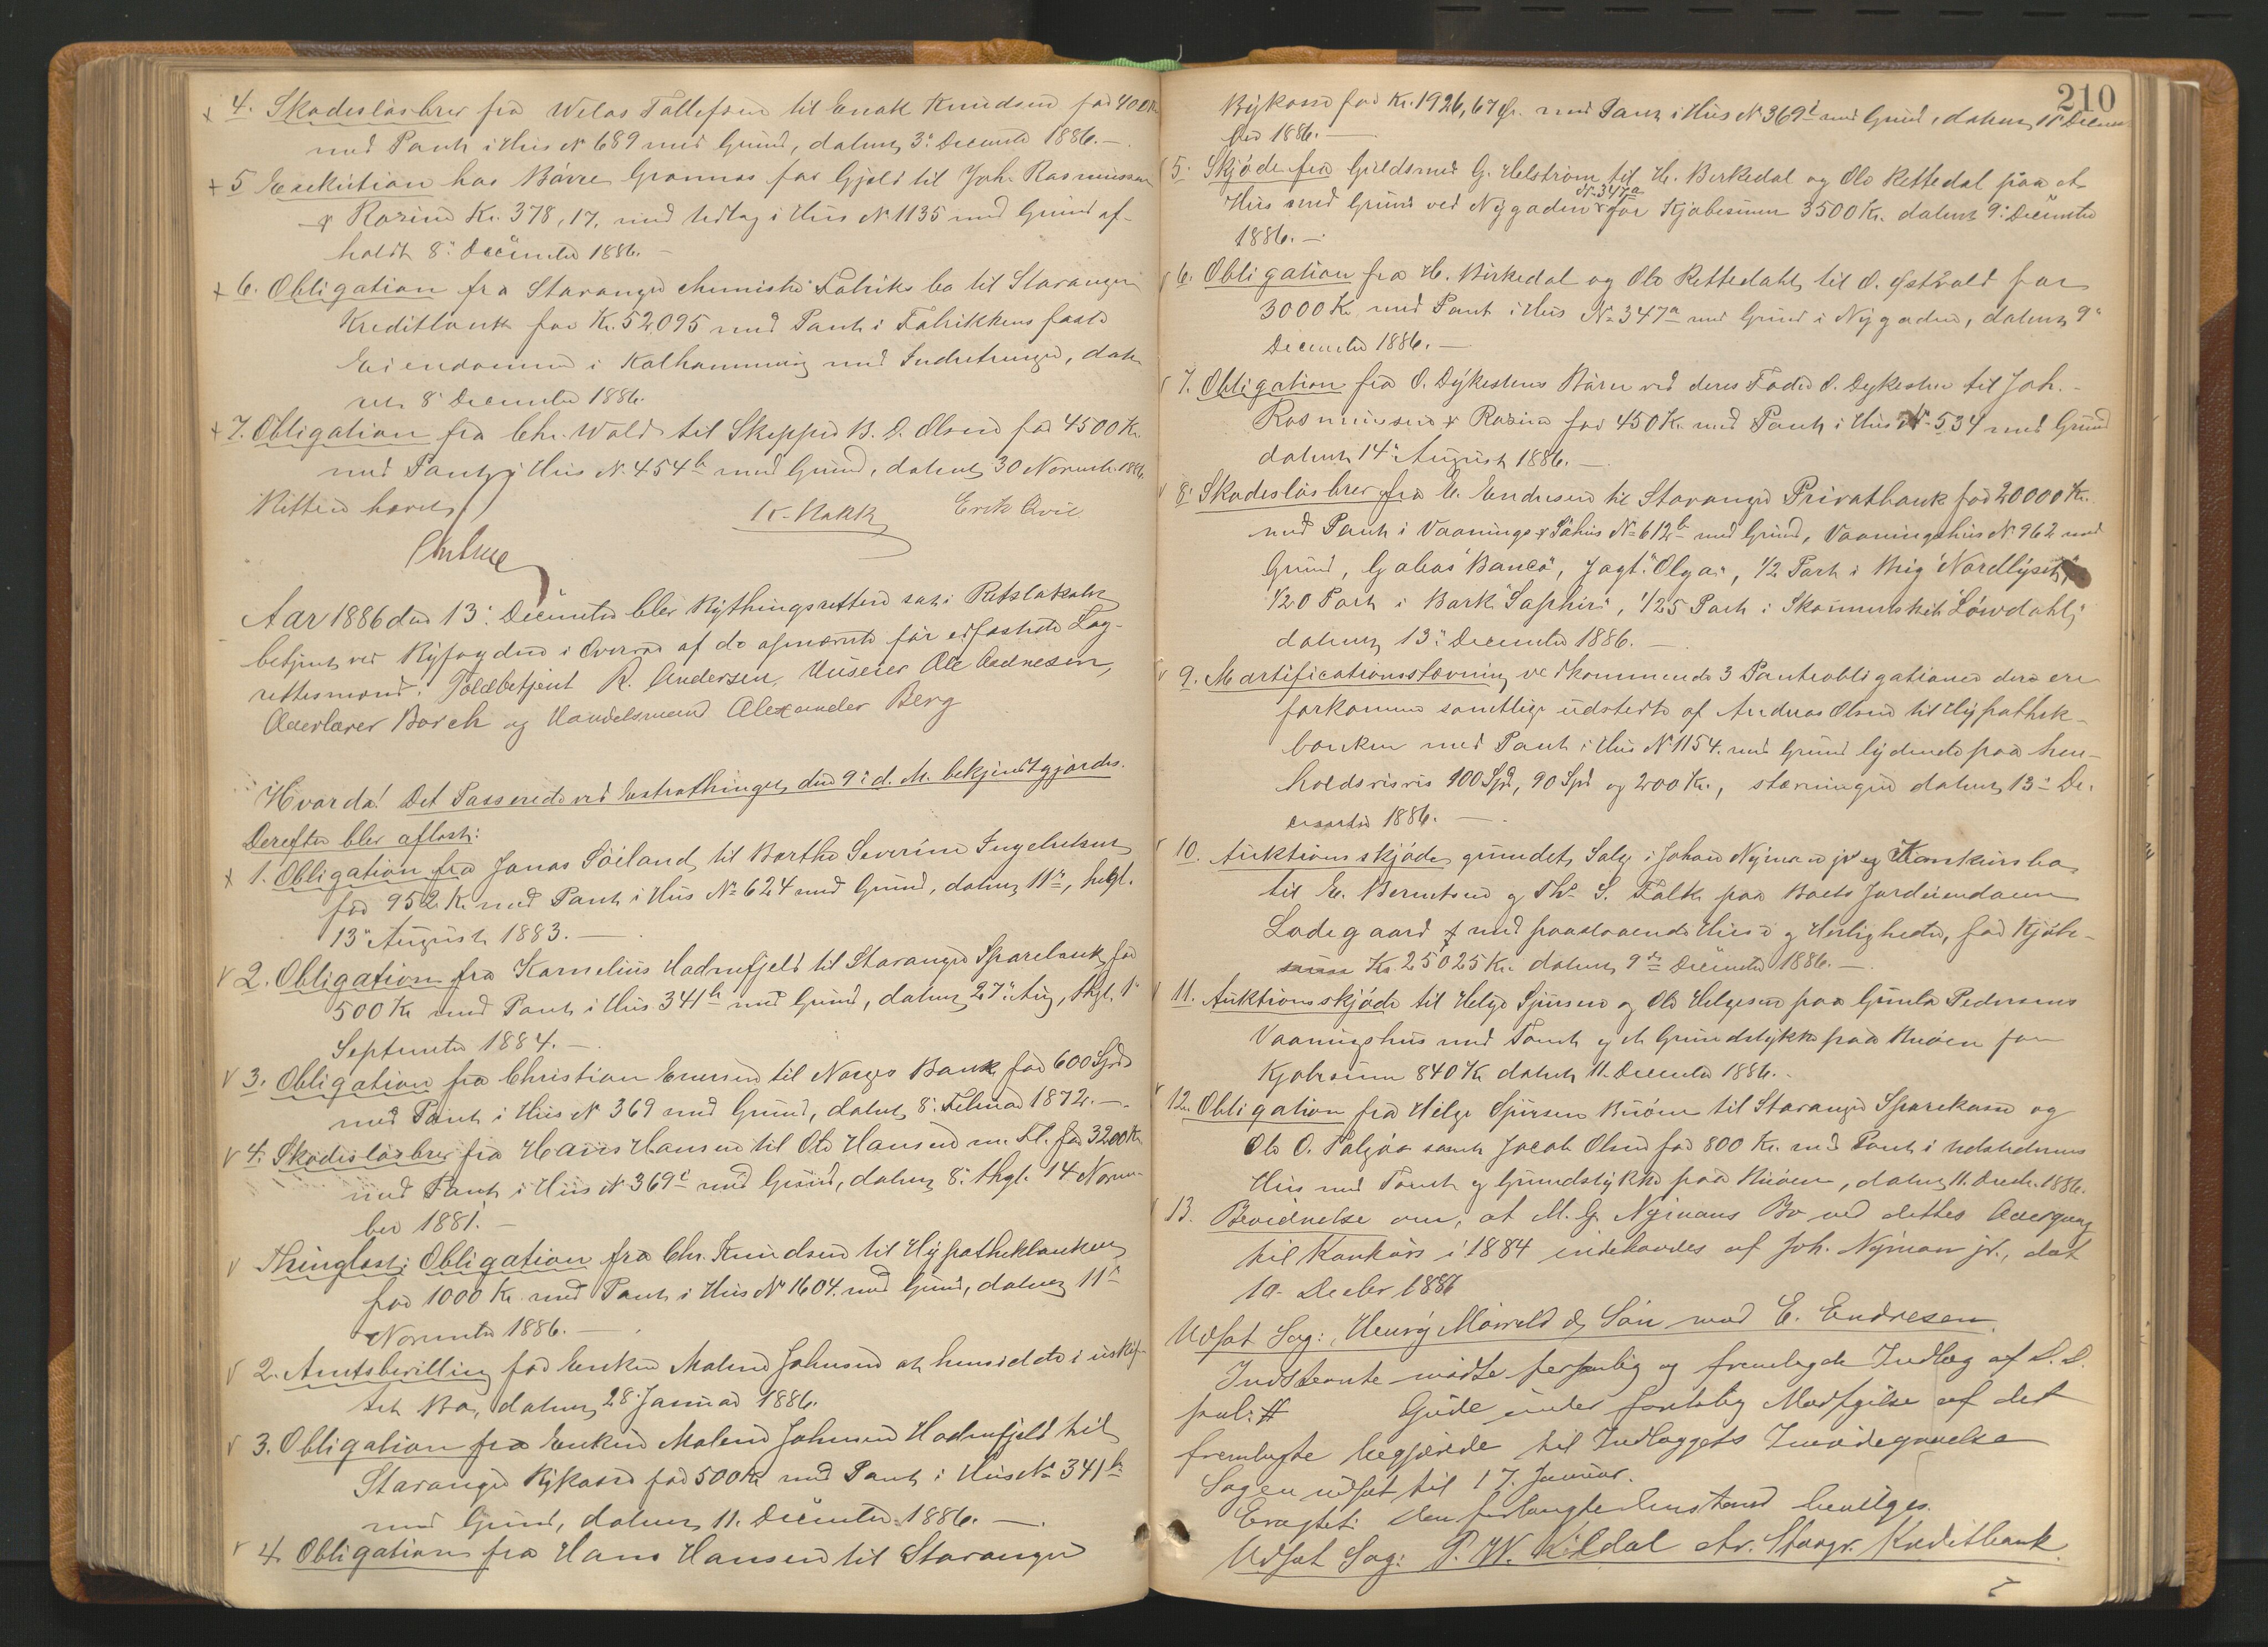 4. Skadesløsbrev fra Tallefsen til Enok Knudsen for 400 Kr
med Pant i Hus No 689 med Grund, dateret 3. December 1886. —
5 Exekution hos Børre Grannes for Gjæld til Joh. Rasmussen
& Racine Kr. 378,17, med Udlæg i Hus No 1135 med Grund af-
holdt 8. December 1886.
6. Obligation fra Stavanger chemiske Fabriks bo til Stavanger
Kreditbank for Kr. 52,095 med Pant i Fabrikkens faste
Eiendomme i Kalhammervig med Indretninger, date
ret 8 December 1886.
7. Obligation fra Chr. Wold til Skipper B. O. Olsen for 4500 Kr.
med Pant i Hus No. 454b med Grund, dateret 30 Novemb. 1886
Retten hævet
Erik Qvie
Aar 1886 den 13. December blev Bythingsretten sat i Retslokalet
betjent ved Byfogden i Overvær af de opnævnte før edfæstede Lag-
rettesmænd: Toldbetjent R. Andersen, Ole Andresen,
Overlærer Borch og Handelsmand Alexander Berg
Hvorda! Det Passerede ved Extrathinget den 9. d. M. bekjendtgjordes.
Derefter blev aflæst:
1. Obligation fra Jonas Söiland til Berthe Severine Ingebretsen
for 952 Kr med Pant i Hus No 624 med Grund, dateret 11te, thgl.
13. August 1883. —
2. Obligation fra Kornelius Hadnefjeld til Stavanger Sparebank for
500 Kr med Pant i Hus 341b med Grund, dateret 27. Aug, thgl. 1.
September 1884. —
3. Obligation fra Christian Enersen til Norges Bank for 600 Spd
med Pant i Hus No 369 med Grund, dateret 8. Februar 1872. —
4. Skadesløsbrev fra Hans Hansen til Ole Hansen m. Fl. for 3200 Kr
med Pant i Hus No 369c med Grund, dateret 8. thgl. 14 Novem-
ber 1881. —
Thinglæst: Obligation fra Chr. Knudsen til Hypothekbanken
for 1000 Kr. med Pant i Hus No 1604. med Grund, dateret 11te
November 1886. —
2. Amtsbevilling for Enken Malene Johnsen at hensidde i uskif-
tet Bo, dateret 28. Januar 1886.
3. Obligation fra Enken Malene Johnsen Hadnefjeld til
Stavanger Bykasse for 500 Kr med Pant i Hus No 341b
med Grund, dateret 11. December 1886. —
4. Obligation fra Hans Hansen til Stavanger
210
Bykasse for Kr. 1926,67 Ør. med Pant i Hus No 369c med Grund, dateret 11te Decem-
ber 1886. —
5. Skjøde fra Gjeldsmed G. Helström til H. Birkedal og Ole Rettedal paa et
No 347a
Hus med Grund ved Nygaden for Kjøbesum 3500 Kr. dateret 9. December
1886. —
6. Obligation fra H. Birkedal og Ole Rettedahl til O. Østvold for
3000 Kr. med Pant i Hus No 347a med Grund i Nygaden, dateret 9.
December 1886. —
7. Obligation fra O. Dykesteens Børn ved deres Fader O. Dykesteen til Joh.
Rasmussen & Racine for 450 Kr. med Pant i Hus No 534 med Grund
dateret 14. August 1886. —
8. Skadesløsbrev fra E. Endresen til Stavanger Privatbank for 20000 Kr.
med Pant i Vaanings & Søhus No 612b med Grund, Vaaningshus No 962 med
Grund, Galeas "Banco", Jagt "Olga", 1/2 Part i Brig "Nordlyset",
1/20 Part i Bark "Saphir", 1/25 Part i Skonnertskib "Löwdahl",
dateret 13. December 1886. —
9. Mortificationsstævning vedkommende 3 Panteobligationer der ere
forkomne samtlige udstedte af Andreas Olsen til Hypothek-
banken med Pant i Hus No 1154. med Grund lydende paa hen-
holdsvis 100 Spd, 90 Spd og 200 Kr., stævningen dateret 13de De-
cember 1886. —
10. Auktionsskjøde grundet Salg i Johan Nyman jr's Konkursbo
til E. Berentsen og Ths. S. Falk paa Boets Jordeiendom
Ladegaard med paastaaende Huse og Herligheder, for Kjøbe-
sum Kr. 25025 Kr. dateret 9de December 1886. —
11. Auktionsskjøde til Helge Sjursen og Ole Helgesen paa Gunla Pedersens
Vaaningshus med Tomt og et Grundstykke paa Buøen for
Kjøbesum 840 Kr dateret 11. December 1886.
12. Obligation fra Helge Sjursen Buøen til Stavanger Sparekasse og
Ole O. samt Jacob Olsen for 800 Kr. med Pant i Udstederens
Hus med Tomt og Grundstykke paa Buøen, dateret 11. Decbr. 1886.
13. Bevidnelse om, at M. G. Nymans Bo ved dettes Overgang
til Konkurs i 1884 indehavdes af Joh. Nyman jr., dat
10. Decbr 1886
Udsat Sag: Henry & Søn mod E. Endresen.
Indstevnte mødte personlig og fremlagde Indlæg af D. D.
Gude under foreløbig Modsigelse af det
fremlagte begjærede til Indlæggets Imødegaaelse
Sagen udsat til 17. Januar.
Eragtet: Den forlangte Anstand bevilges.
Udsat Sag: P. W. Kildal ctr. Stavgr. Kreditbank.